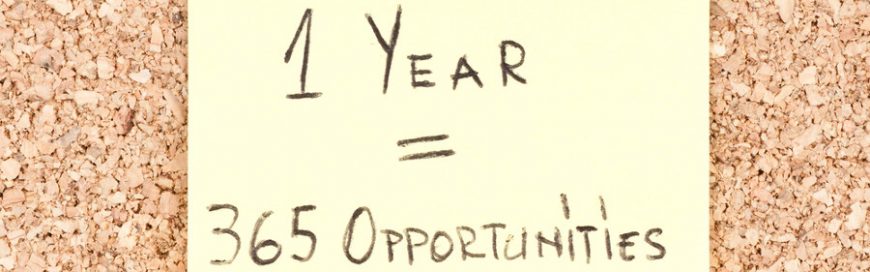 1 YEAR
=
365 OPPORTUNITIES